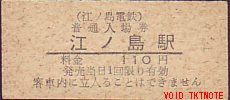 (江ノ島電鉄)
普通入場券
江ノ島駅
料金 110円
発売当日1回限り有効
客車内に立入ることはできません
VOID TKTNOTE